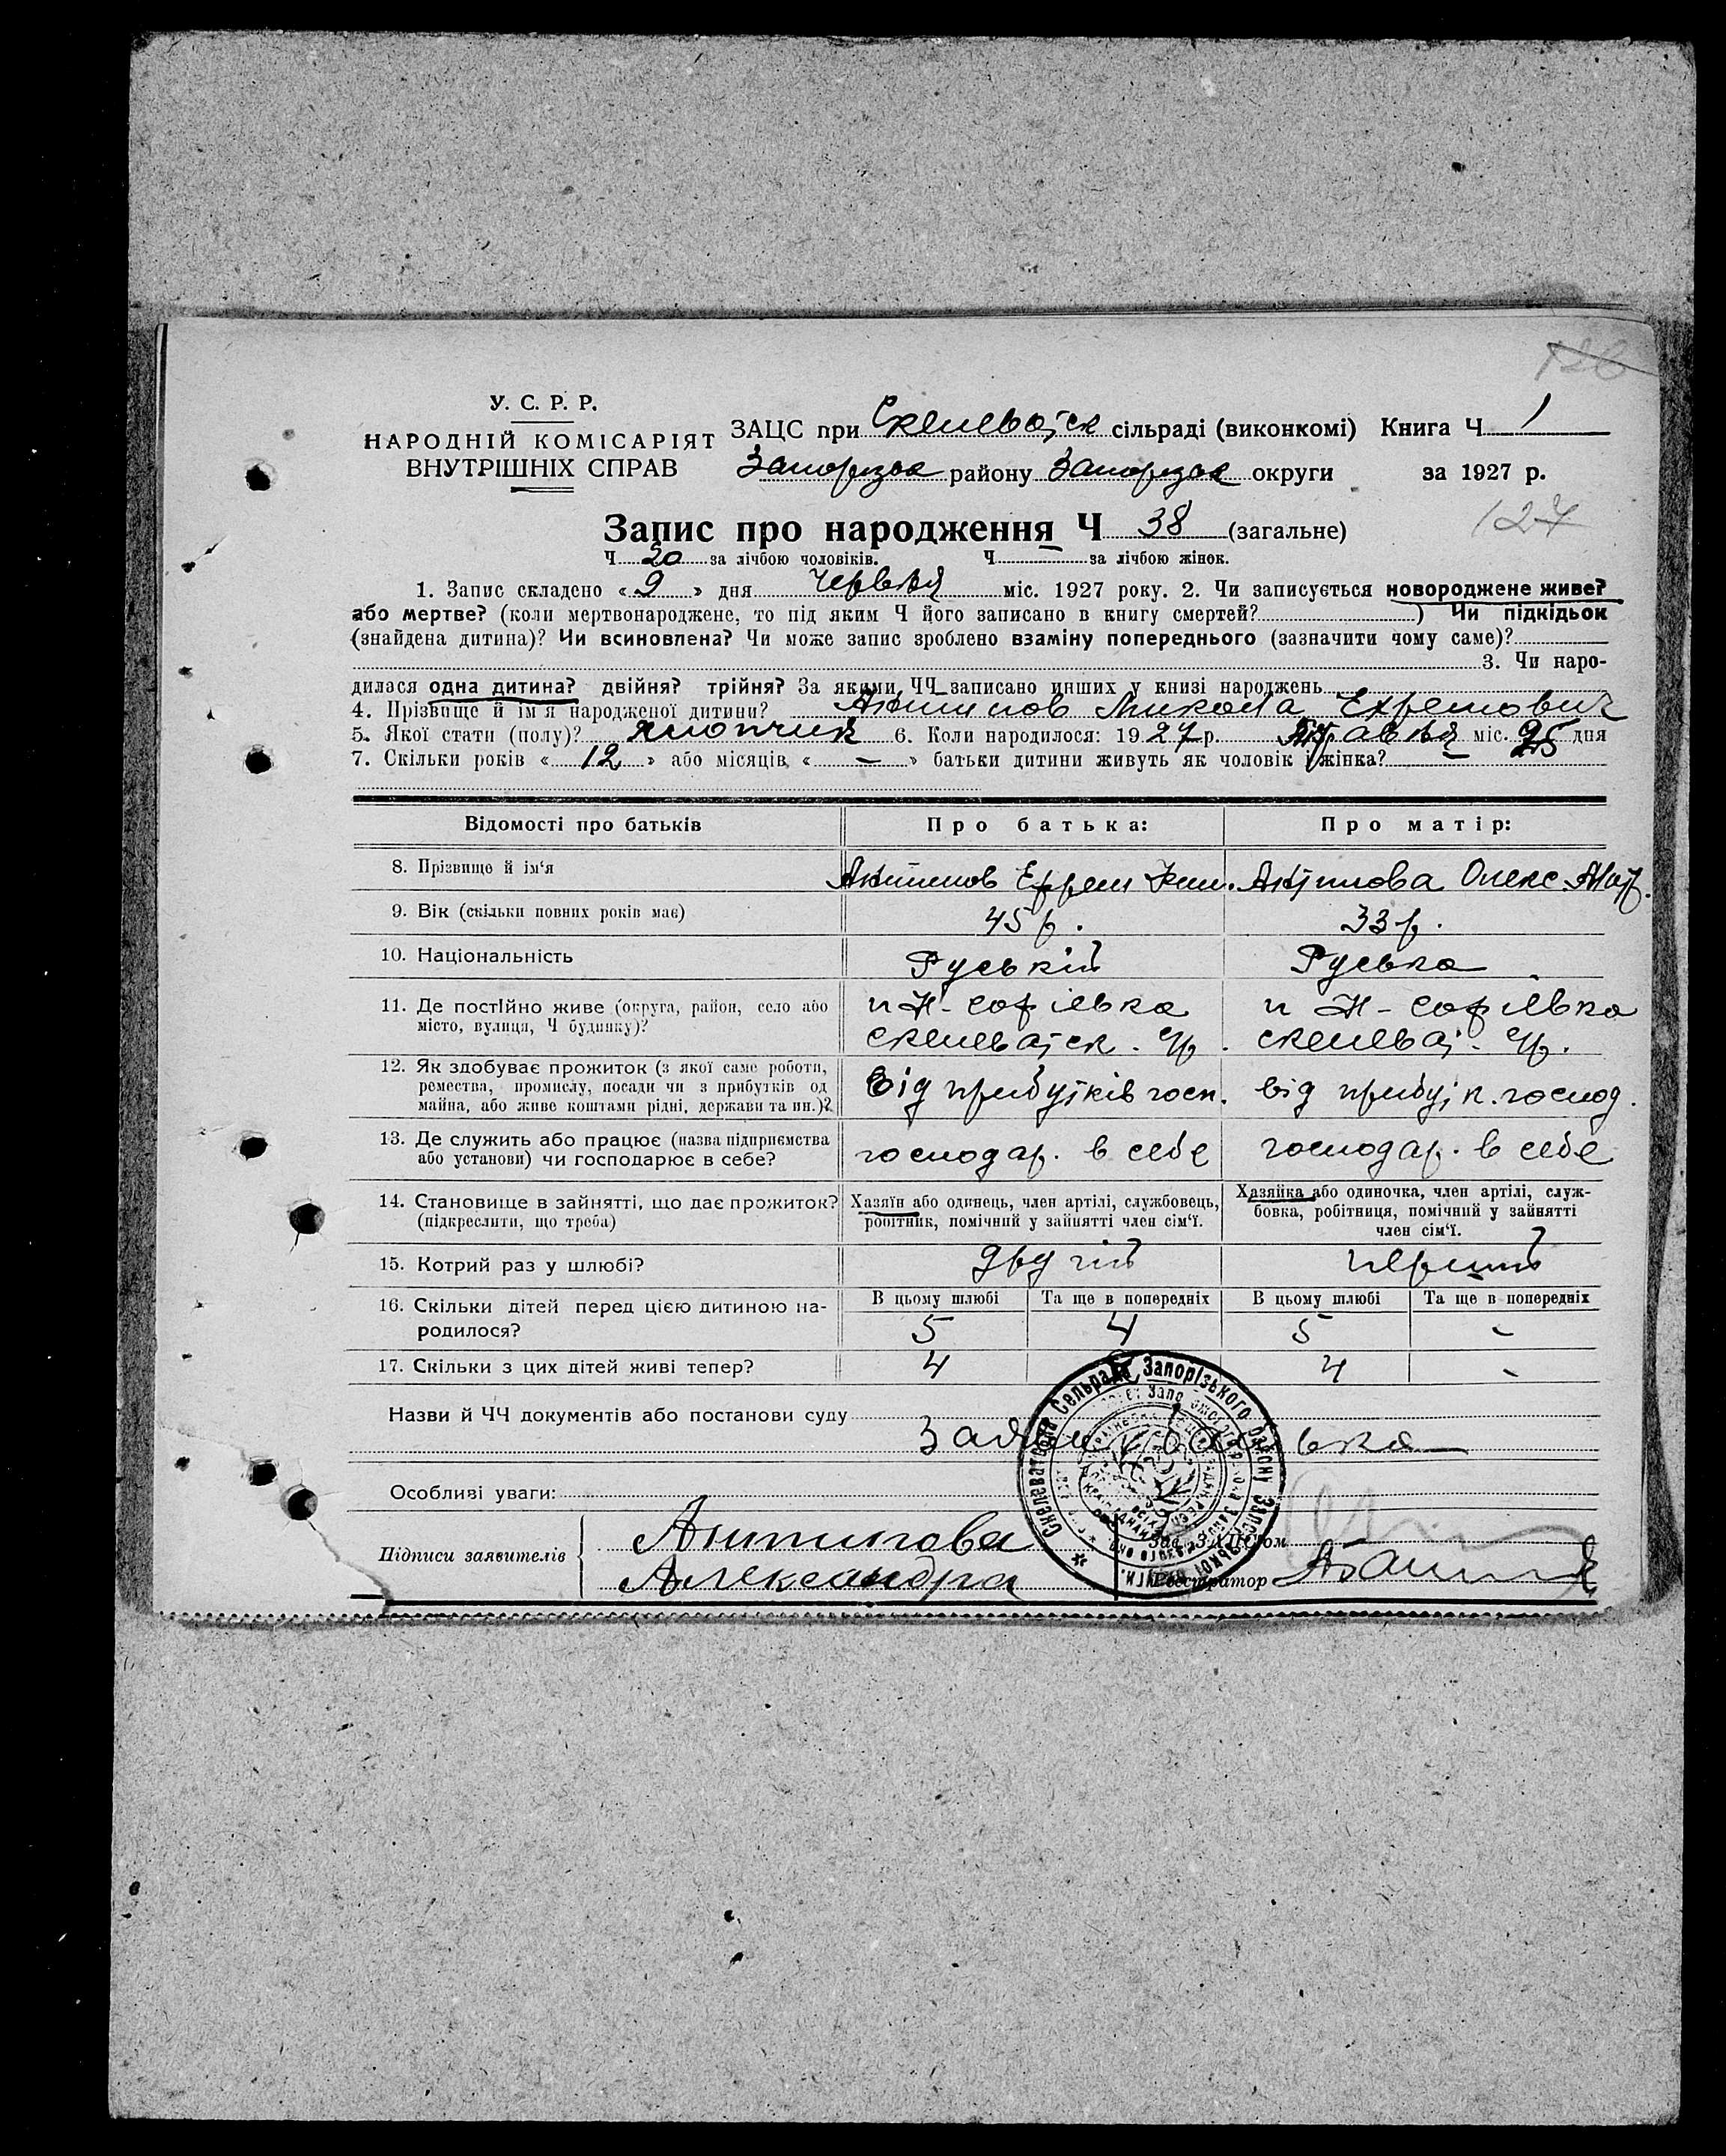 126
У. С. Р. Р.
НАРОДНІЙ КОМІСАРІЯТ
ВНУТРІШНІХ СПРАВ
ЗАЦС при Скелеватск сільраді (виконкомі) Книга Ч 1
Запорізьк району Запорізьк округи за 1927 р.
127
Запис про народження Ч 38 (загальне)
Ч 20 за лічбою чоловіків. Ч за лічбою жінок.
1. Запис складено «9» дня червня міс. 1927 року. 2. Чи записується новороджене живе?
або мертве? (коли мертвонароджене, то під яким Ч його записано в книгу смертей? ) Чи підкідьок
(знайдена дитина)? Чи всиновлена? Чи може запис зроблено взаміну попереднього (зазначити чому саме)?
3. Чи наро-
дилася одна дитина? двійня? трійня? За якими ЧЧ записано инших у книзі народжень
4. Прізвище й ім'я народженої дитини? Антипов Микола Ехремович
5. Якої стати (полу)? хлопчик 6. Коли народилося: 1927 р. Травня міс. 25 дня
7. Скільки років «12» або місяців «–» батьки дитини живуть як чоловік і жінка? –
Відомості про батьків Про батька: Про матір:
8. Прізвище й ім'я Антипов Ефрем Антипова Олекс.
9. Вік (скільки повних років має) 45 р. 33 р.
10. Національність Руській Руська
11. Де постійно живе (округа, район, село або
місто, вулиця, Ч будинку)?
п Н-Софіевка п Н-Софіевка
скелеватск. скелеват.
12. Як здобуває прожиток (з якої саме роботи,
ремества, промислу, посади чи з прибутків од
майна, або живе коштами рідні, держави та ин.)?
Від прибутків госп. від прибутк. господ.
13. Де служить або працює (назва підприємства
або установи) чи господарює в себе?
господар. в себе господар. в себе
14. Становище в зайнятті, що дає прожиток?
(підкреслити, що треба)
Хазяїн або одинець, член артілі, службовець,
робітник, помічний у зайнятті член сім'ї.
Хазяйка або одиночка, член артілі, служ-
бовка, робітниця, помічний у зайнятті
член сім'ї.
15. Котрий раз у шлюбі? другій перший
16. Скільки дітей перед цією дитиною на-
родилося?
В цьому шлюбі Та ще в попередніх В цьому шлюбі Та ще в попередніх
5 4 5 -
17. Скільки з цих дітей живі тепер? 4 4 -
Назви й ЧЧ документів або постанови суду
Особливі уваги:
Скелеватська Сельрада Запорізького Району Запорізької округи.
Підписи заявителів Антипова
Александра
Зав. ЗАЦС'ом
Реєстратор